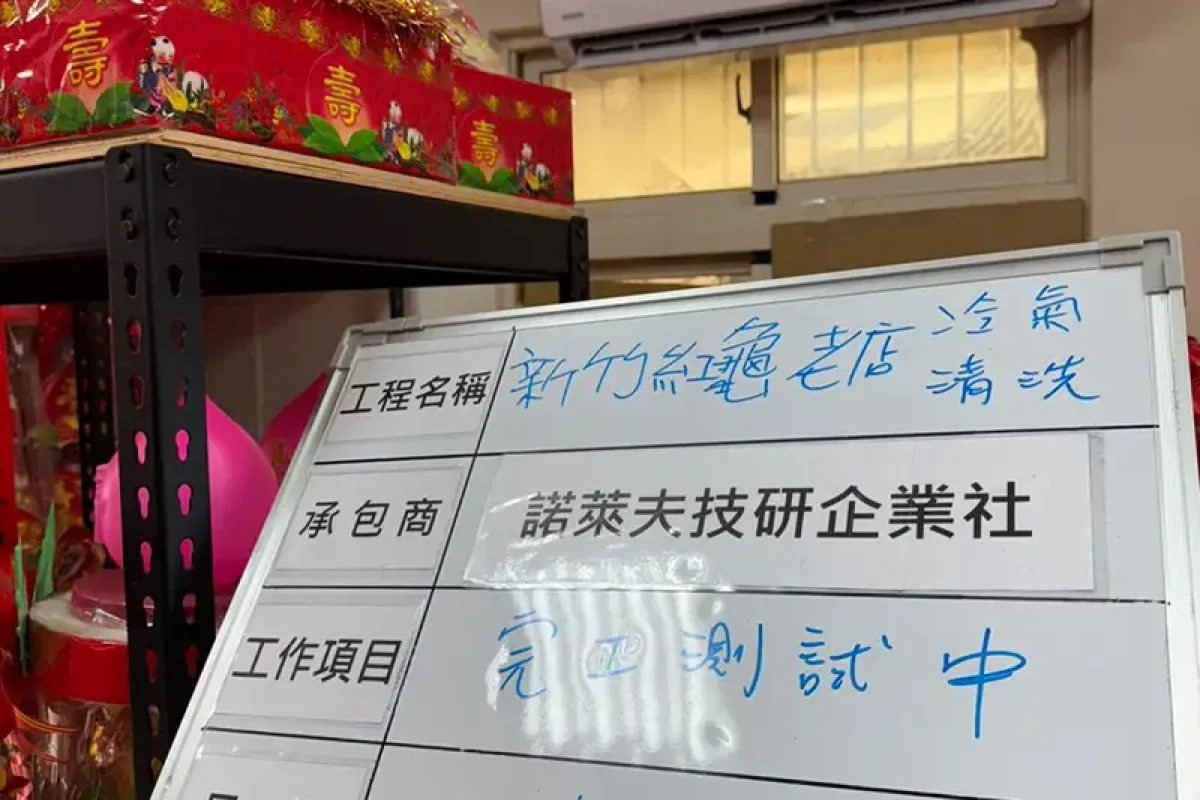 壽 壽 壽
工程名稱 新竹紅龜老店冷氣清洗
承包商 諾萊夫技研企業社
工作項目 完工測試中